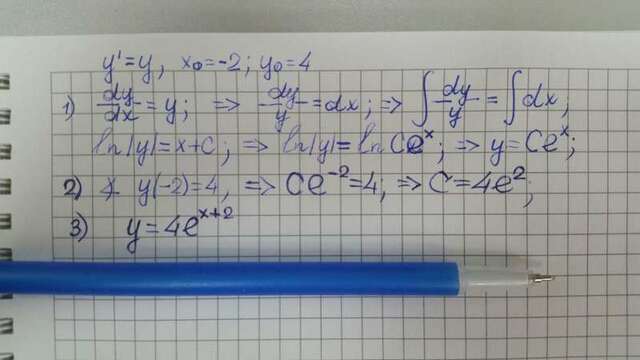 y'=y, x₀=-2; y₀=4
1) dy/dx = y; => dy/y = dx; => ∫ dy/y = ∫ dx;
ln|y|=x+C; => ln|y|=ln Ceˣ; => y=Ceˣ;
2) y(-2)=4, => Ce⁻²=4; => C=4e²;
3) y=4eˣ⁺²